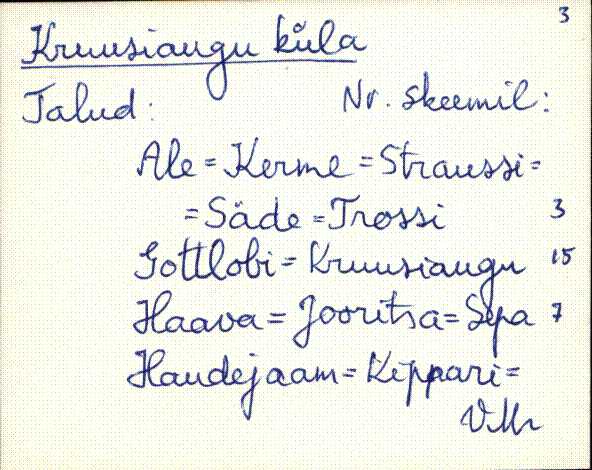 3
Kruusiaugu küla
Talud: Nr. skeemil:
Ale = Kerme = Straussi =
= Säde = Trossi 3
Gottlobi = Kruusiaugu 15
Haava = Jooritsa = Sepa 7
Haudejaam = Kippari =
VMr